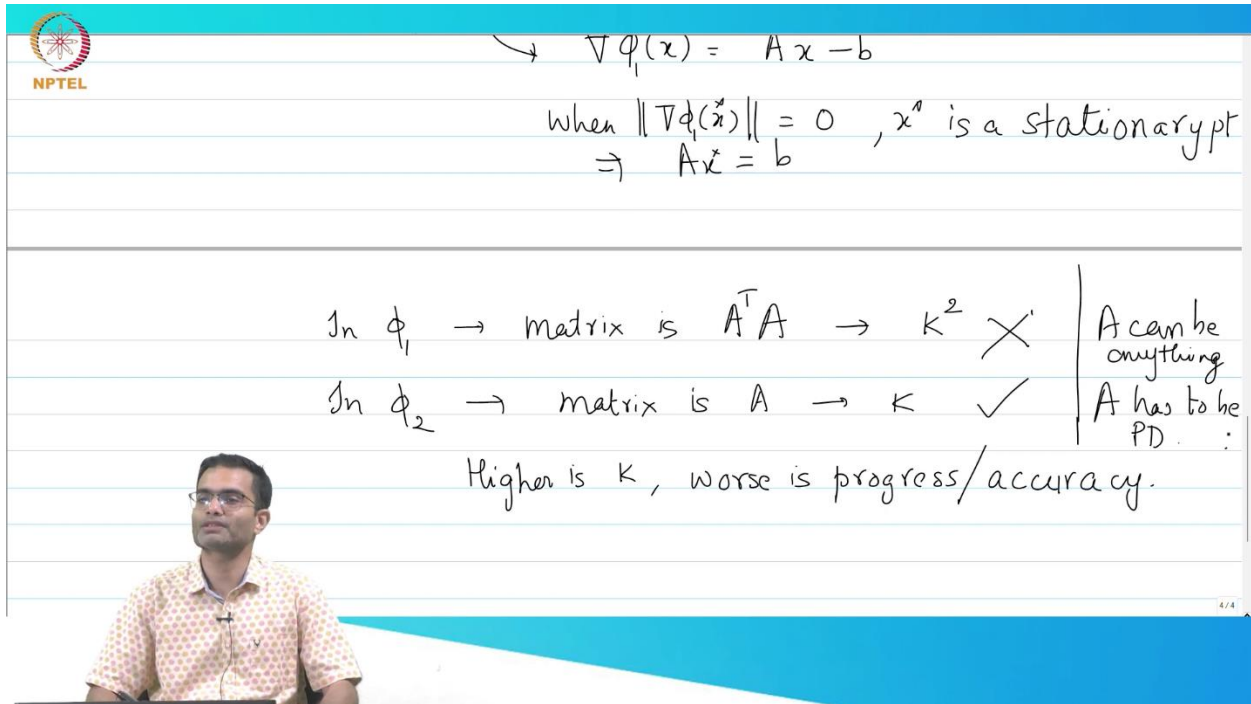 NPTEL
↘ ∇φ₁(x) = Ax − b
when ‖∇φ₁(x*)‖ = 0 , x* is a stationary pt
⇒ Ax* = b
In φ₁ → matrix is AᵀA → K² ✗ | A can be anything
In φ₂ → matrix is A → K ✓ | A has to be PD. :
Higher is K, worse is progress/accuracy.
4 / 4